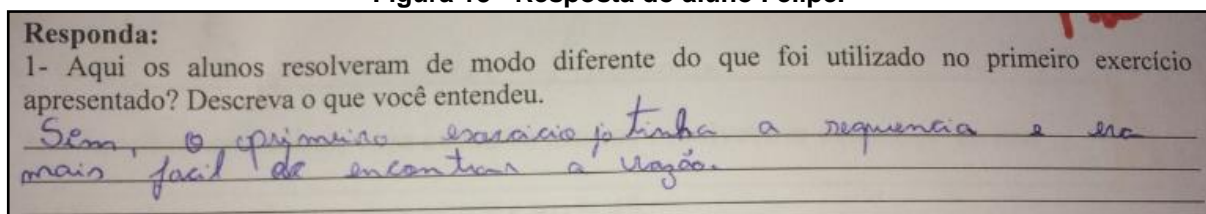 Figura 18 - Resposta do aluno Felipe.
Responda:
1- Aqui os alunos resolveram de modo diferente do que foi utilizado no primeiro exercício
apresentado? Descreva o que você entendeu.
Sem, o primeiro exercicio ja tinha a sequencia e era
mais facil de encontrar a razão.